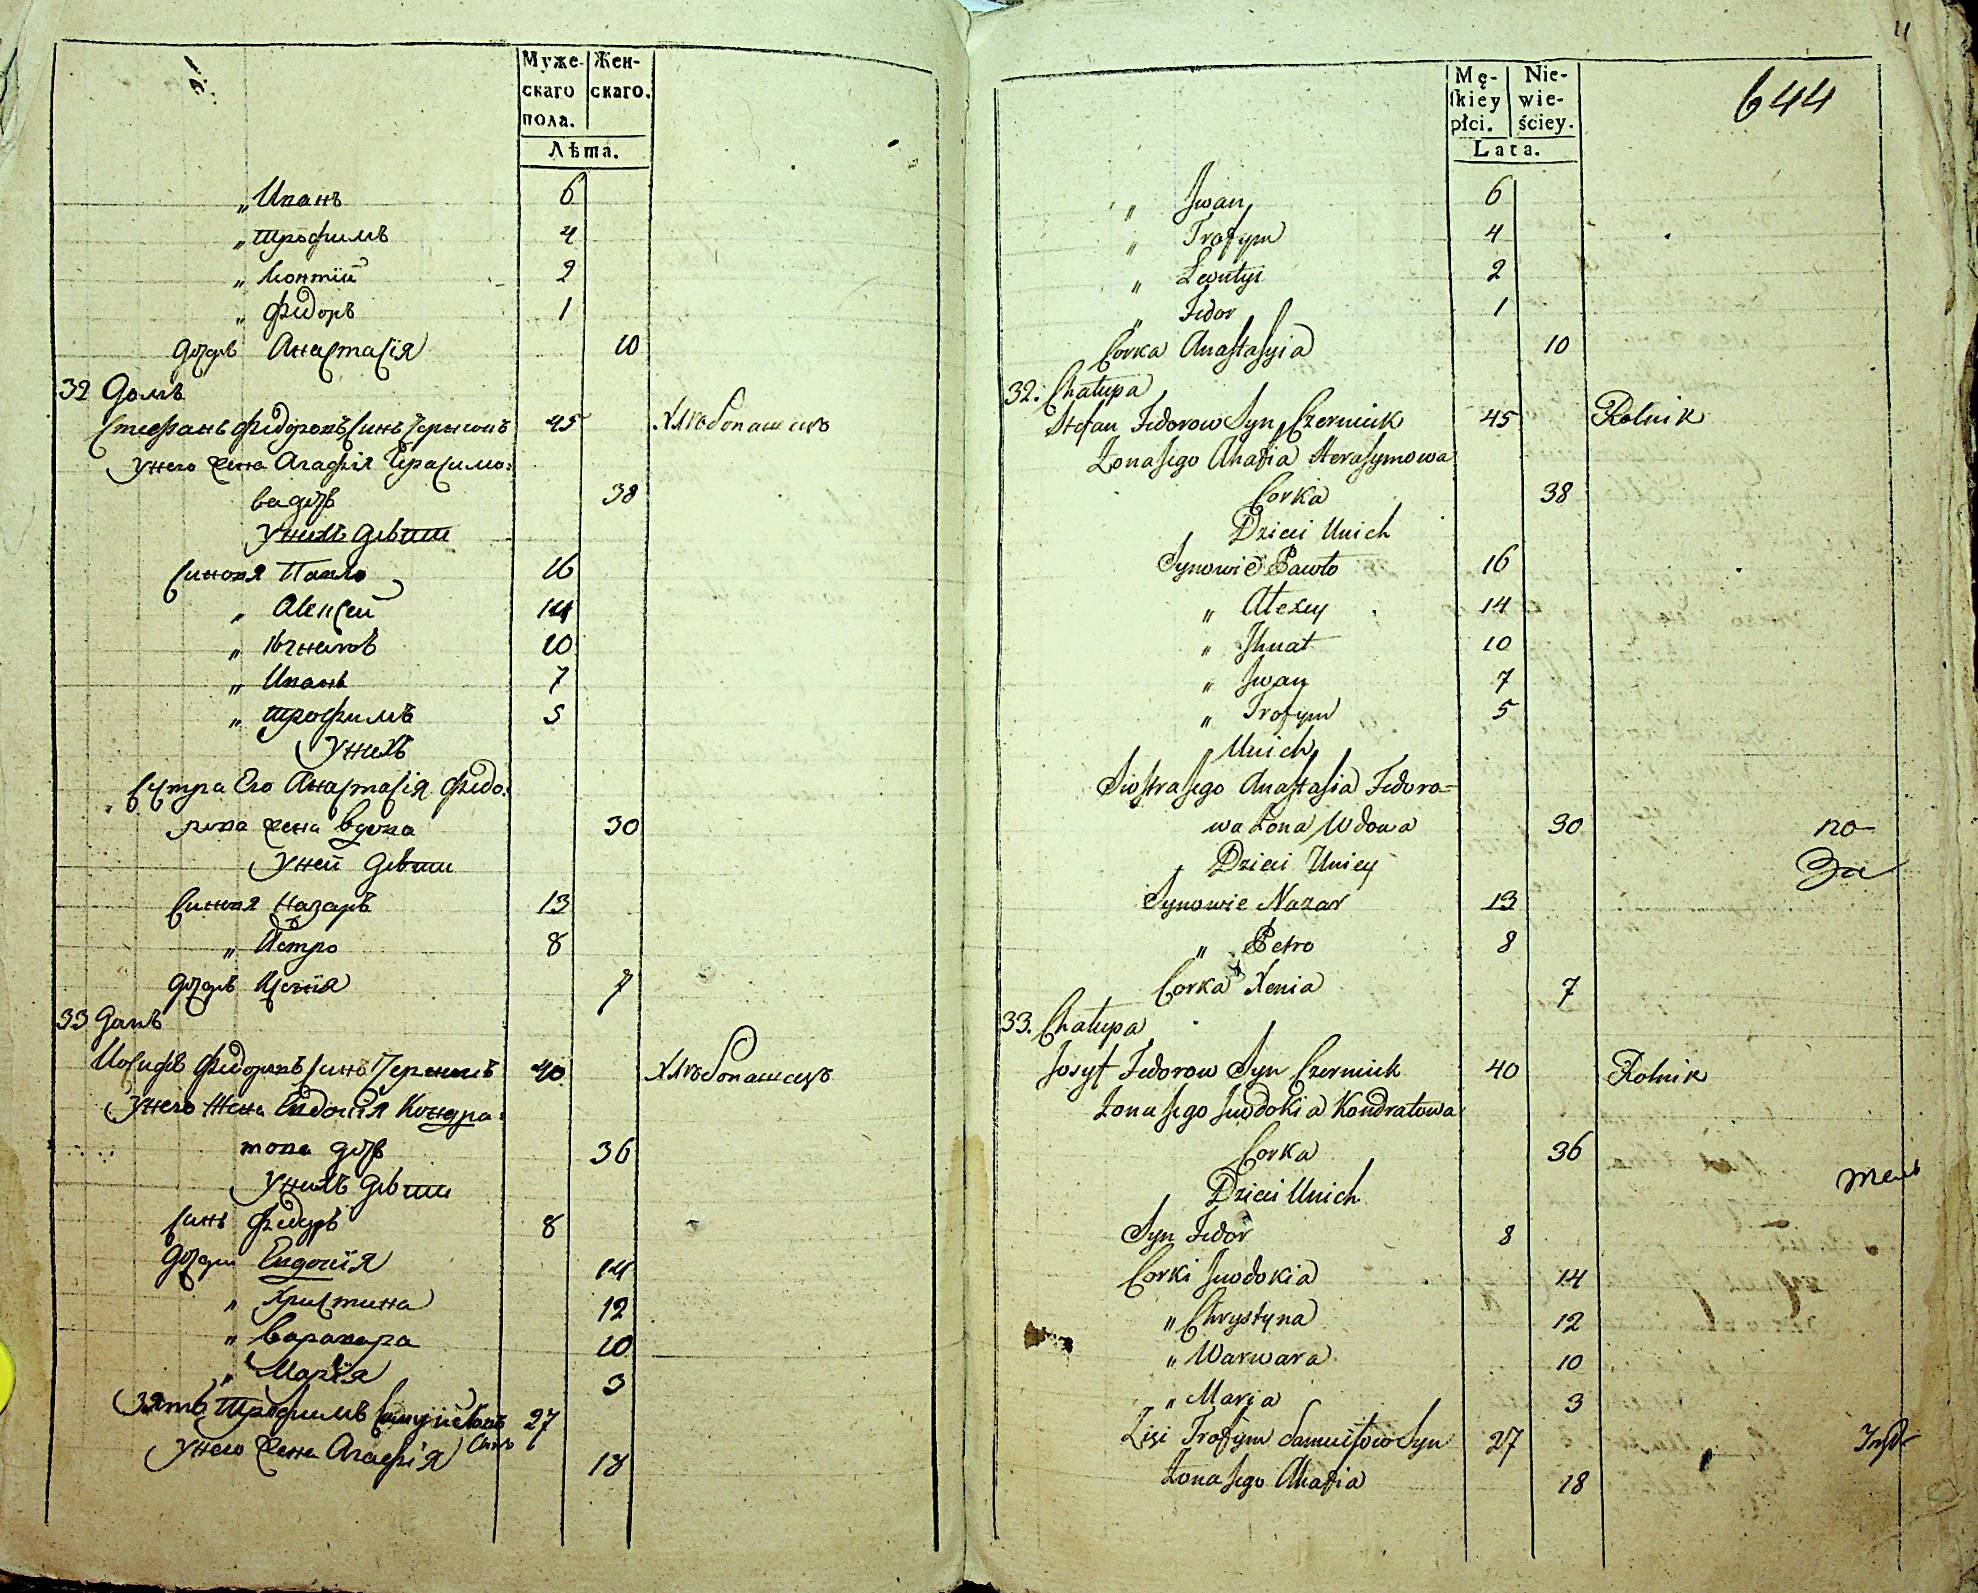 Муже-
скаго
пола.
Жен-
скаго.
Лѣта.
„ Иванъ 6
„ Трофимъ 4
„ Леонтій 2
„ Фидоръ 1
дочерь Анастасія 10
32 Домъ
Стефанъ Фидоровъ синъ 45 Хлѣбопашецъ
у него жена Агафія Герасимо-
ва дочь 38
у нихъ дѣти
Синовя Павло 16
„ Алексей 14
„ Игнатъ 10
„ Иванъ 7
„ Трофимъ 5
у нихъ
сестра Его Анастасія Фидо-
рова жена вдова 30
у ней дѣти
Синовя Назаръ 13
„ Петро 8
дочерь Ксенія 7
33 Домъ
Иосифъ Фидоровъ синъ 40 Хлѣбопашецъ
у него Жена Евдокія Кондра-
това дочь 36
у нихъ дѣти
синъ Фидоръ 8
дочери Евдокія 14
„ Христина 12
„ Варвара 10
„ Марія 3
Зять Трофимъ Самуйловъ 27
синъ
у него жена Агафія 18
11
644
Mę-
ſkiey
płci.
Nie-
wie-
ściey.
Lata.
„ Jwan 6
„ Trofym 4
„ Leontyi 2
„ Fedor 1
Corka Anastasyia 10
32. Chałupa
Stefan Fedorow Syn Czerniuk 45 Rolnik
Żona Jego Ahafia Herasymowa
Corka 38
Dzieci U nich
Synowie Pawło 16
„ Alexy 14
„ Jhnat 10
„ Jwan 7
„ Trofym 5
U nich
Siostra Jego Anastasia Fedoro=
wa żona Wdowa 30
Dzieci U niey
Synowie Nazar 13
„ Petro 8
Corka Xenia 7
33. Chałupa
Josyf Fedorow Syn Czerniuk 40 Rolnik
Żona Jego Jwdokia Kondratowa
Corka 36
Dzieci U nich
Syn Fedor 8
Corki Jwdokia 14
„ Chrystyna 12
„ Warwara 10
„ Marja 3
Zięć Trofym Samuiłow Syn 27
Żona Jego Ahafia 18
по-
За
тель